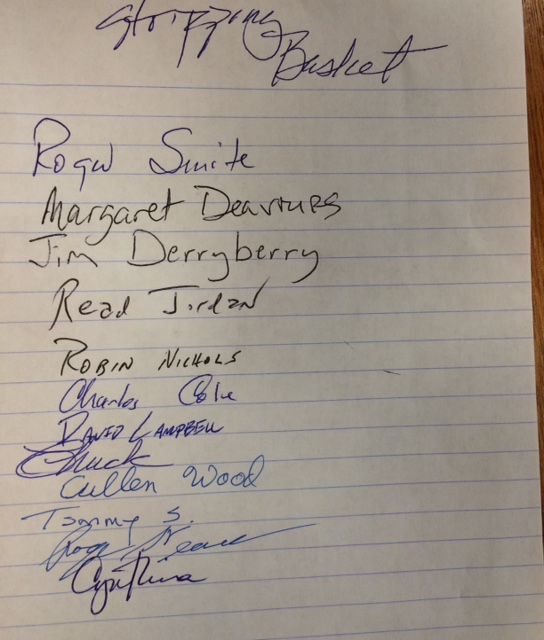 Stripping
Basket
Roger Smite
Margaret Deavours
Jim Derryberry
Read Jordan
Robin Nichols
Charles Cole
David Campbell
Chuck
Cullen Wood
Tommy S.
Cynthina